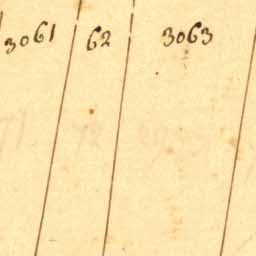 3061 62 3063